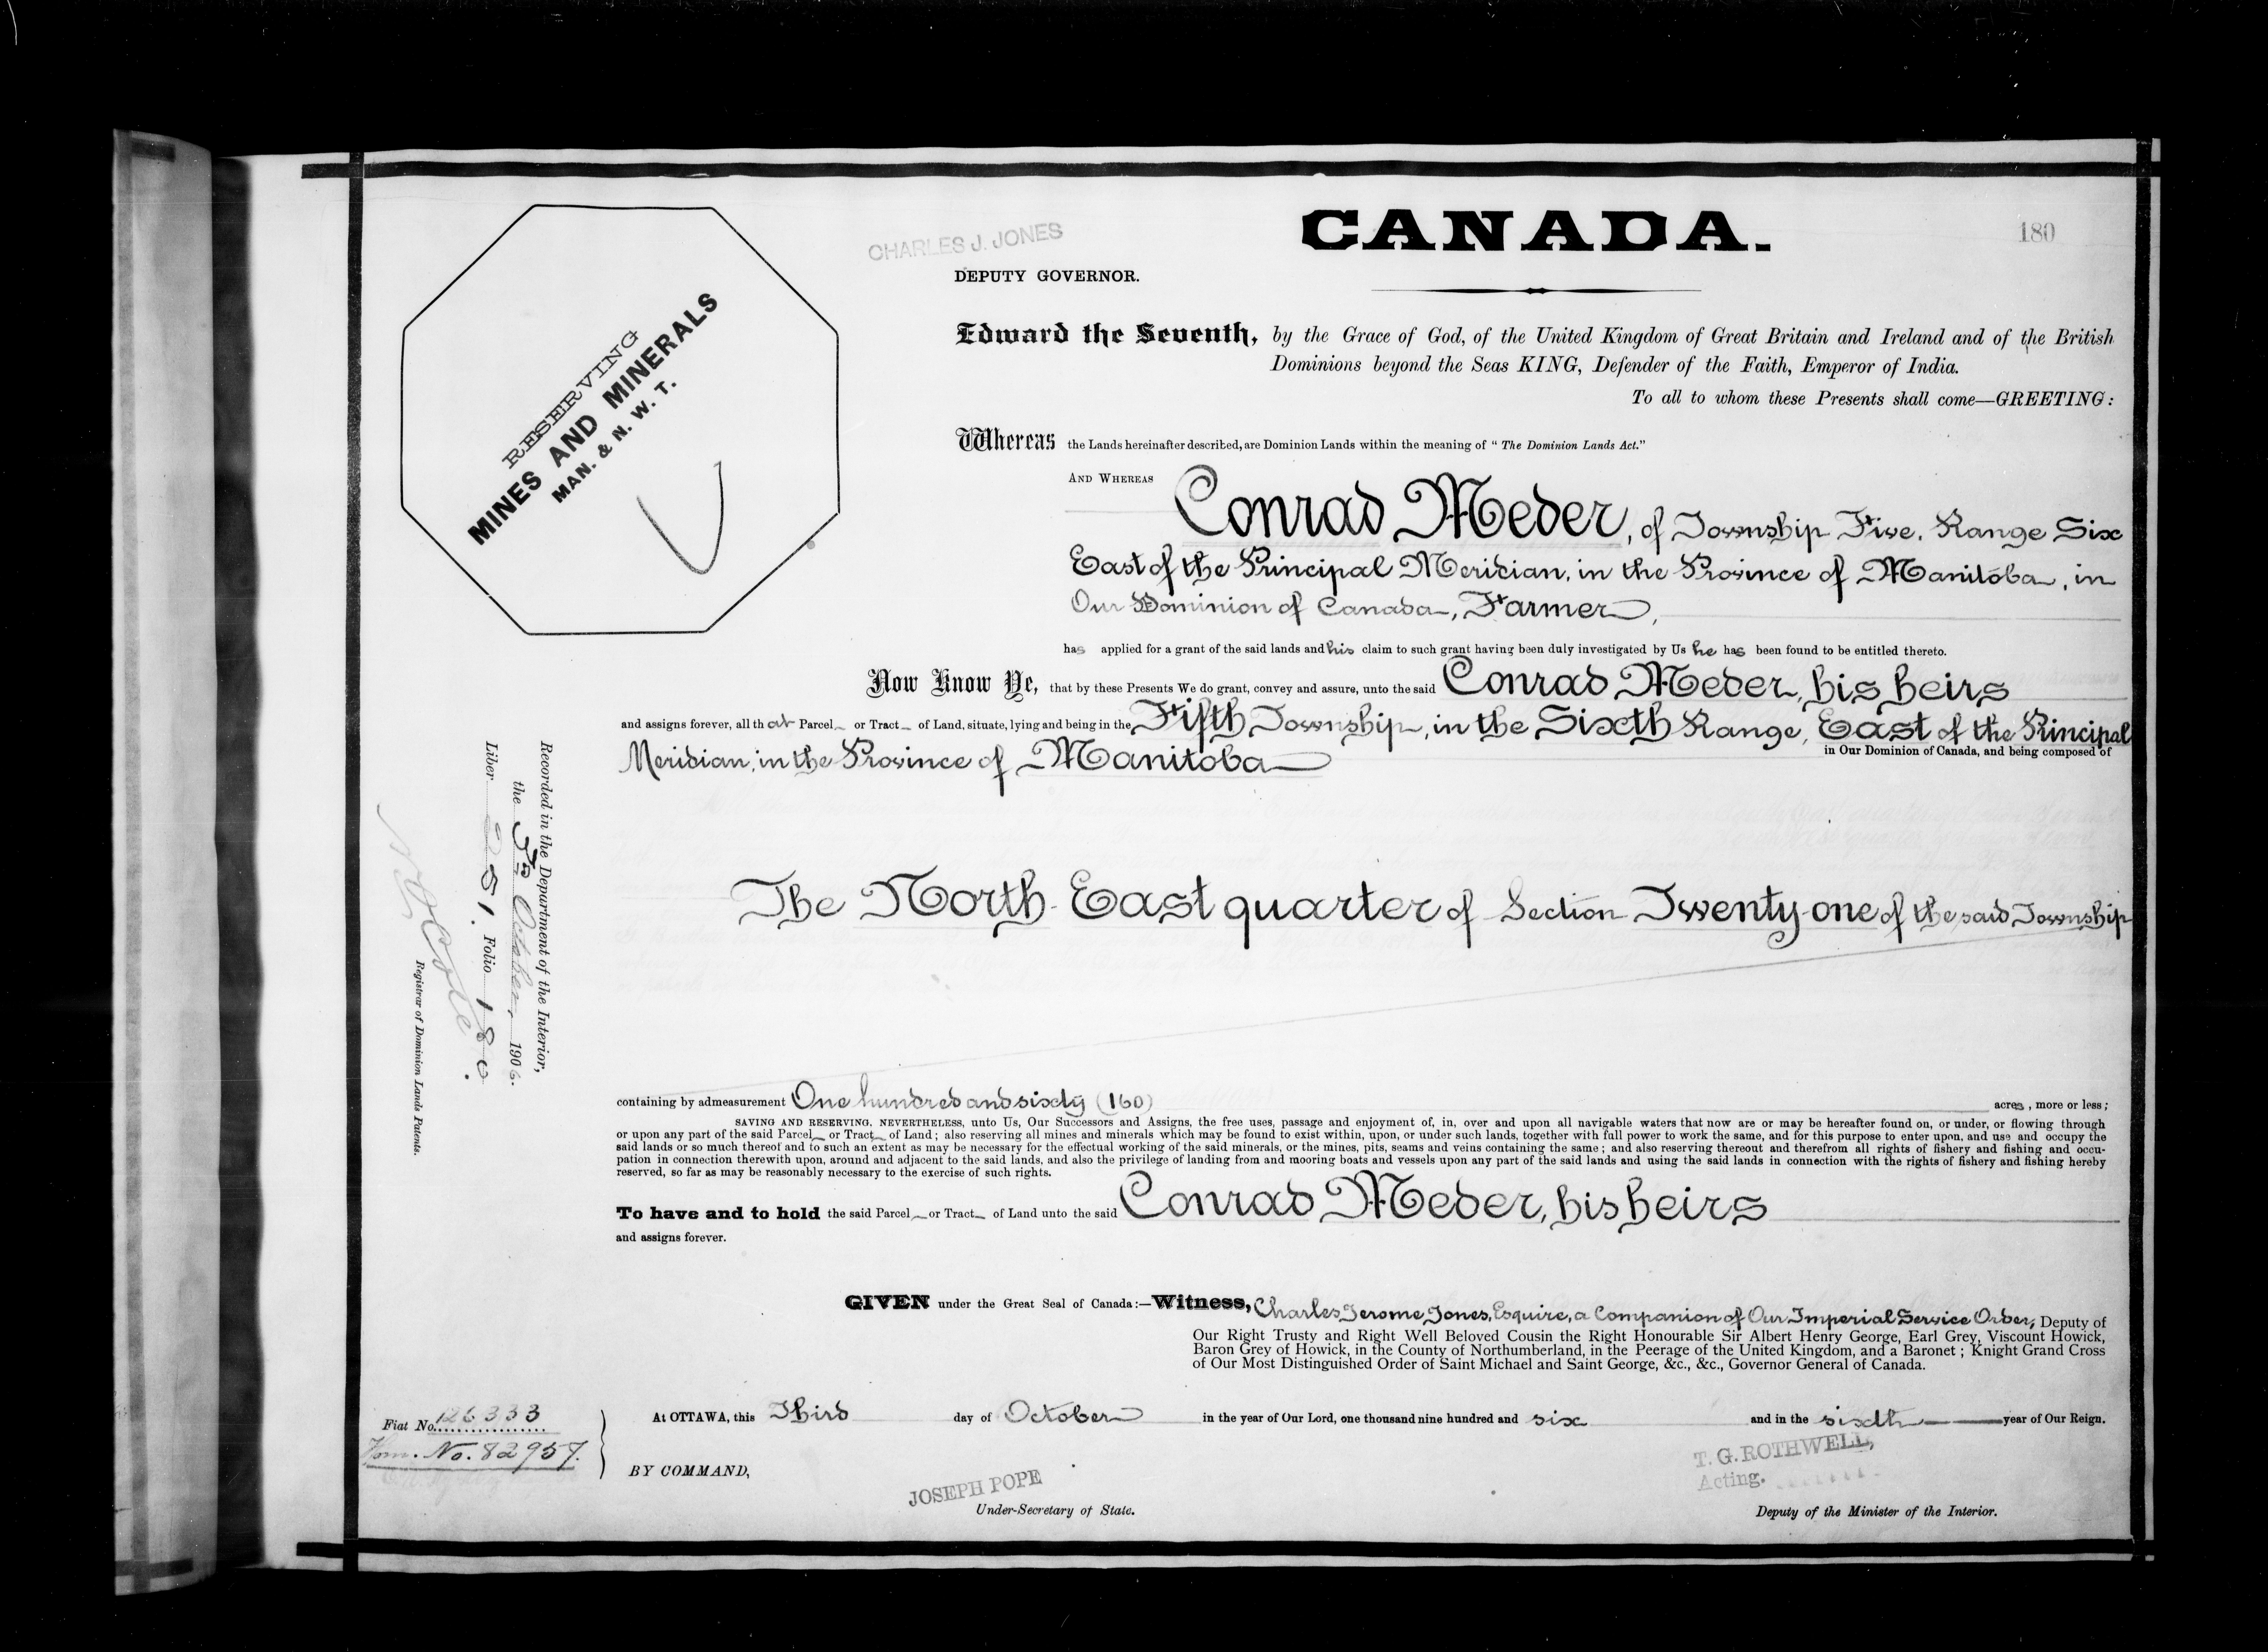 CANADA.
180
CHARLES J. JONES
DEPUTY GOVERNOR.
RESERVING
MINES AND MINERALS
MAN. & N. W. T.
Edward the Seventh, by the Grace of God, of the United Kingdom of Great Britain and Ireland and of the British
Dominions beyond the Seas KING, Defender of the Faith, Emperor of India.
To all to whom these Presents shall come—GREETING:
Whereas the Lands hereinafter described, are Dominion Lands within the meaning of "The Dominion Lands Act."
AND WHEREAS Conrad Meder, of Township Five, Range Six
East of the Principal Meridian, in the Province of Manitoba, in
Our Dominion of Canada, Farmer,
has applied for a grant of the said lands and his claim to such grant having been duly investigated by Us he has been found to be entitled thereto.
Now Know Ye, that by these Presents We do grant, convey and assure, unto the said Conrad Meder, his heirs
and assigns forever, all that Parcel or Tract of Land, situate, lying and being in the Fifth Township, in the Sixth Range, East of the Principal
Meridian, in the Province of Manitoba in Our Dominion of Canada, and being composed of
The North East quarter of Section Twenty-one of the said Township
containing by admeasurement One hundred and sixty (160) acres, more or less;
SAVING AND RESERVING, NEVERTHELESS, unto Us, Our Successors and Assigns, the free uses, passage and enjoyment of, in, over and upon all navigable waters that now are or may be hereafter found on, or under, or flowing through
or upon any part of the said Parcel or Tract of Land; also reserving all mines and minerals which may be found to exist within, upon, or under such lands, together with full power to work the same, and for this purpose to enter upon, and use and occupy the
said lands or so much thereof and to such an extent as may be necessary for the effectual working of the said minerals, or the mines, pits, seams and veins containing the same; and also reserving thereout and therefrom all rights of fishery and fishing and occu-
pation in connection therewith upon, around and adjacent to the said lands, and also the privilege of landing from and mooring boats and vessels upon any part of the said lands and using the said lands in connection with the rights of fishery and fishing hereby
reserved, so far as may be reasonably necessary to the exercise of such rights.
To have and to hold the said Parcel or Tract of Land unto the said Conrad Meder, his heirs
and assigns forever.
GIVEN under the Great Seal of Canada:—Witness, Charles Jerome Jones, Esquire, a Companion of Our Imperial Service Order, Deputy of
Our Right Trusty and Right Well Beloved Cousin the Right Honourable Sir Albert Henry George, Earl Grey, Viscount Howick,
Baron Grey of Howick, in the County of Northumberland, in the Peerage of the United Kingdom, and a Baronet; Knight Grand Cross
of Our Most Distinguished Order of Saint Michael and Saint George, &c., &c., Governor General of Canada.
At OTTAWA, this Third day of October in the year of Our Lord, one thousand nine hundred and six and in the sixth year of Our Reign.
BY COMMAND,
JOSEPH POPE
Under-Secretary of State.
T. G. ROTHWELL,
Acting.
Deputy of the Minister of the Interior.
Fiat No. 126333
Hom. No. 82957.
Recorded in the Department of the Interior,
the 3rd October, 1906.
Liber 251. Folio 180.
Registrar of Dominion Lands Patents.